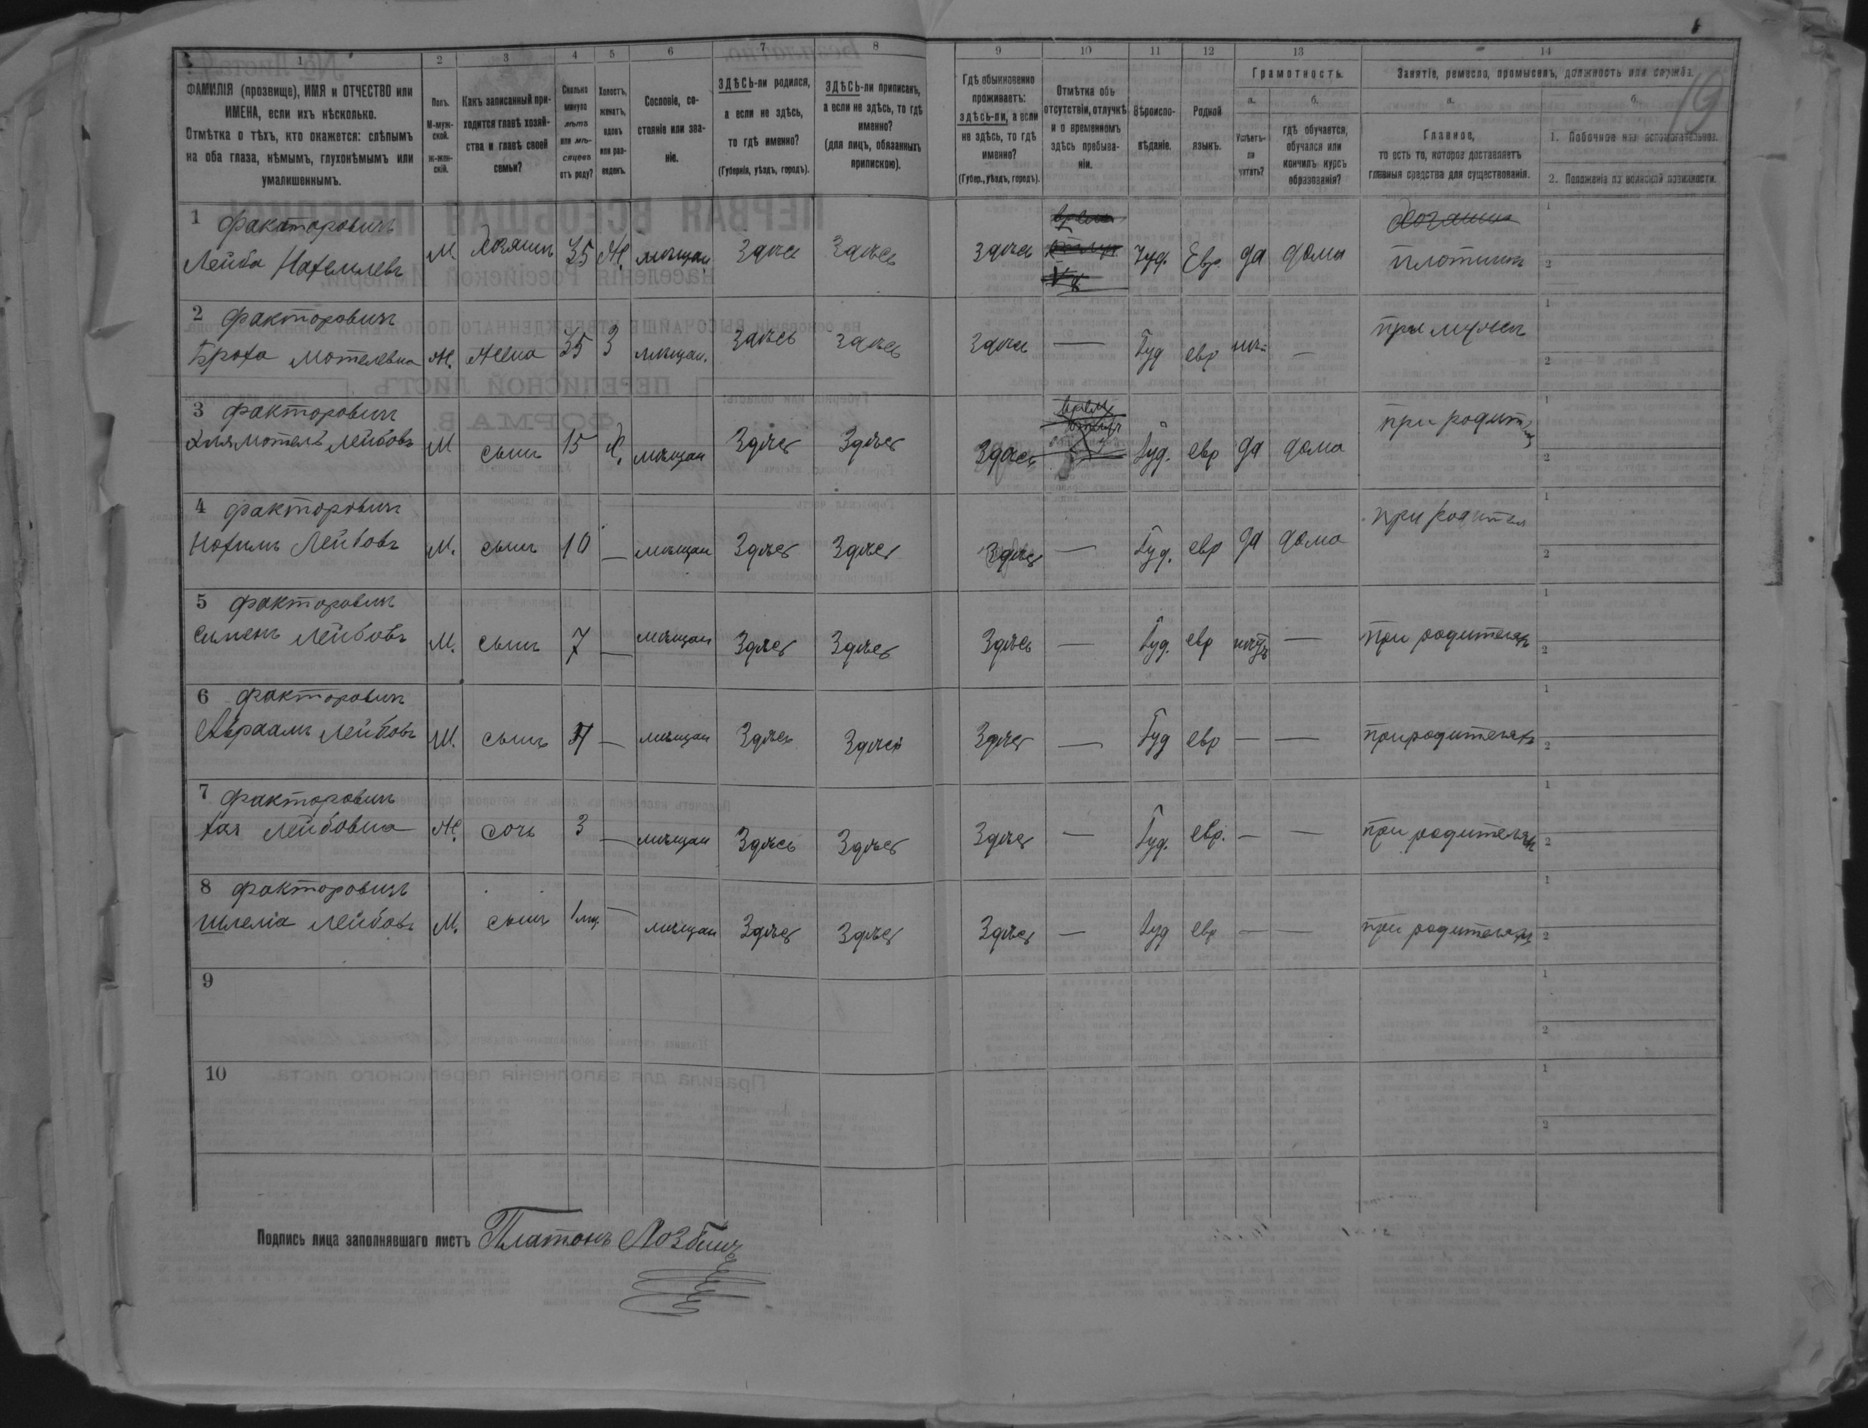 1
2
3
4
5
6
7
8
9
10
11
12
13
14
19
ФАМИЛІЯ (прозвище), ИМЯ и ОТЧЕСТВО или
ИМЕНА, если ихъ нѣсколько.
Отмѣтка о тѣхъ, кто окажется: слѣпымъ
на оба глаза, нѣмымъ, глухонѣмымъ или
умалишеннымъ.
Полъ.
М-муж-
ской.
ж-жен-
скій.
Какъ записанный при-
ходится главѣ хозяй-
ства и главѣ своей
семьи?
Сколько
минуло
лѣтъ
или мѣ-
сяцевъ
отъ роду?
Холостъ,
женатъ,
вдовъ
или раз-
веденъ.
Сословіе, со-
стояніе или зва-
ніе.
ЗДѢСЬ-ли родился,
а если не здѣсь,
то гдѣ именно?
(Губернія, уѣздъ, городъ).
ЗДѢСЬ-ли приписанъ,
а если не здѣсь, то гдѣ
именно?
(для лицъ, обязанныхъ
припискою).
Гдѣ обыкновенно
проживаетъ:
здѣсь-ли, а если
не здѣсь, то гдѣ
именно?
(Губер., уѣздъ, городъ).
Отмѣтка объ
отсутствіи, отлучкѣ
и о временномъ
здѣсь пребыва-
ніи.
Вѣроиспо-
вѣданіе.
Родной
языкъ.
Грамотность.
а.
Умѣетъ-
ли
читать?
б.
гдѣ обучается,
обучался или
кончилъ курсъ
образованія?
Занятіе, ремесло, промыселъ, должность или служба.
а.
Главное,
то есть то, которое доставляетъ
главныя средства для существованія.
б.
1. Побочное или вспомогательное.
2. Положеніе по воинской повинности.
1 Факторовичъ
Лейба Нахмилевъ М Хозяинъ 35 Ж. мѣщан Здѣсь Здѣсь Здѣсь Іуд. Евр да дома плотникъ
2 Факторовичъ
Броха Мотелевна Ж. жена 35 З мѣщан. Здѣсь Здѣсь Здѣсь — Іуд евр нѣ — при мужѣ
3 Факторовичъ
Мотель Лейбовъ М сынъ 15 Х. мѣщан Здѣсь Здѣсь Здѣсь Іуд. евр да дома при родит
4 Факторовичъ
Нохимъ Лейбовъ М. сынъ 10 — мѣщан Здѣсь Здѣсь Здѣсь — Іуд. евр да дома при родител
5 Факторовичъ
Сименъ Лейбовъ М. сынъ 7 — мѣщан Здѣсь Здѣсь Здѣсь — Іуд. евр — при родителяхъ
6 Факторовичъ
Авраамъ Лейбовъ М. сынъ — мѣщан Здѣсь Здѣсь Здѣсь — Іуд евр — — при родителяхъ
7 Факторовичъ
Хая Лейбовна Ж. дочь 3 — мѣщан Здѣсь Здѣсь Здѣсь — Іуд. евр. — — при родителях
8 Факторовичъ
Шлема Лейбовъ М. сынъ 1 мц. — мѣщан Здѣсь Здѣсь Здѣсь — Іуд евр — — при родителях
9
10
Подпись лица заполнявшаго листъ Платонъ